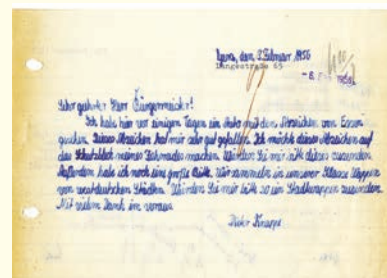 Gera, den 2. Februar 1956
Langestraße 65
Sehr geehrter Herr Bürgermeister!
Ich habe hier vor einigen Tagen ein Auto mit dem Abzeichen von Essen
gesehen. Dieses Abzeichen hat mir sehr gut gefallen. Ich möchte dieses Abzeichen auf
das Schutzblech meines Fahrrades machen. Würden Sie mir bitte dieses zusenden.
Außerdem habe ich noch eine große Bitte. Wir sammeln in unserer Klasse Wappen
von westdeutschen Städten. Würden Sie mir bitte so ein Stadtwappen zusenden.
Mit vielem Dank im voraus
Dieter